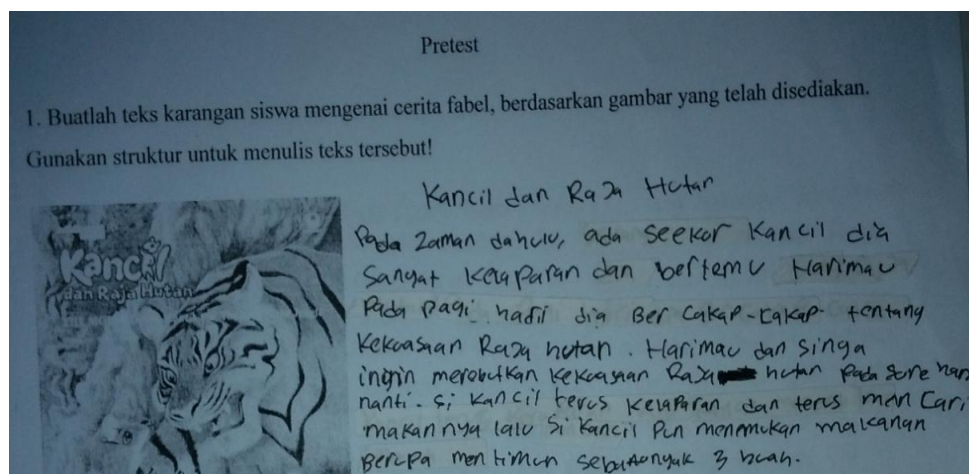 Pretest
1. Buatlah teks karangan siswa mengenai cerita fabel, berdasarkan gambar yang telah disediakan.
Gunakan struktur untuk menulis teks tersebut!
Kancil dan Raja Hutan
Kancil
dan Raja Hutan
Pada Zaman dahulu, ada seekor Kancil dia
Sangat Kelaparan dan bertemu Harimau
Pada pagi hari dia Ber cakap-cakap tentang
Kekuasaan Raja hutan. Harimau dan singa
ingin merebutkan kekuasaan Raja hutan Pada sore hari
nanti. Si Kancil terus kelaparan dan terus men Cari
makannya lalu Si Kancil Pun menemukan makanan
Berupa mentimun sebanyak 3 buah.